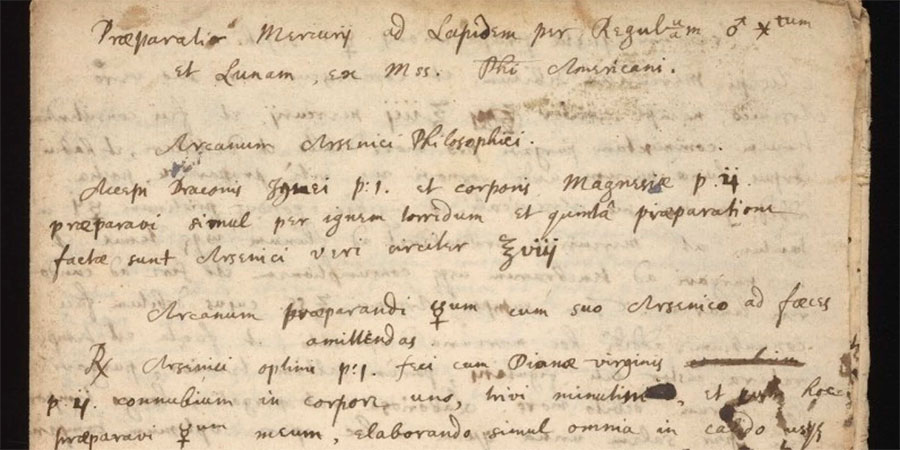 Præparatio Mercurij ad Lapidem per Regulum ♂ ✶tum
et Lunam, ex Mss. Phi Americani.
Arcanum Arsenici Philosophici.
Accepi Draconis Ignei p:1. et corporis Magnesiæ p.ij.
præparavi simul per ignem torridum et quintâ præparatione
factæ sunt Arsenici veri circiter ℥viij
Arcanum præparandi ☿um cum suo Arsenico ad fæces
amittendas
℞ Arsenici optimi p:1. feci cum Dianæ virginis
p.ij. connubium in corpore uno, trivi minutim, et hoc
præparavi ☿um meum, elaborando simul omnia in calido usq